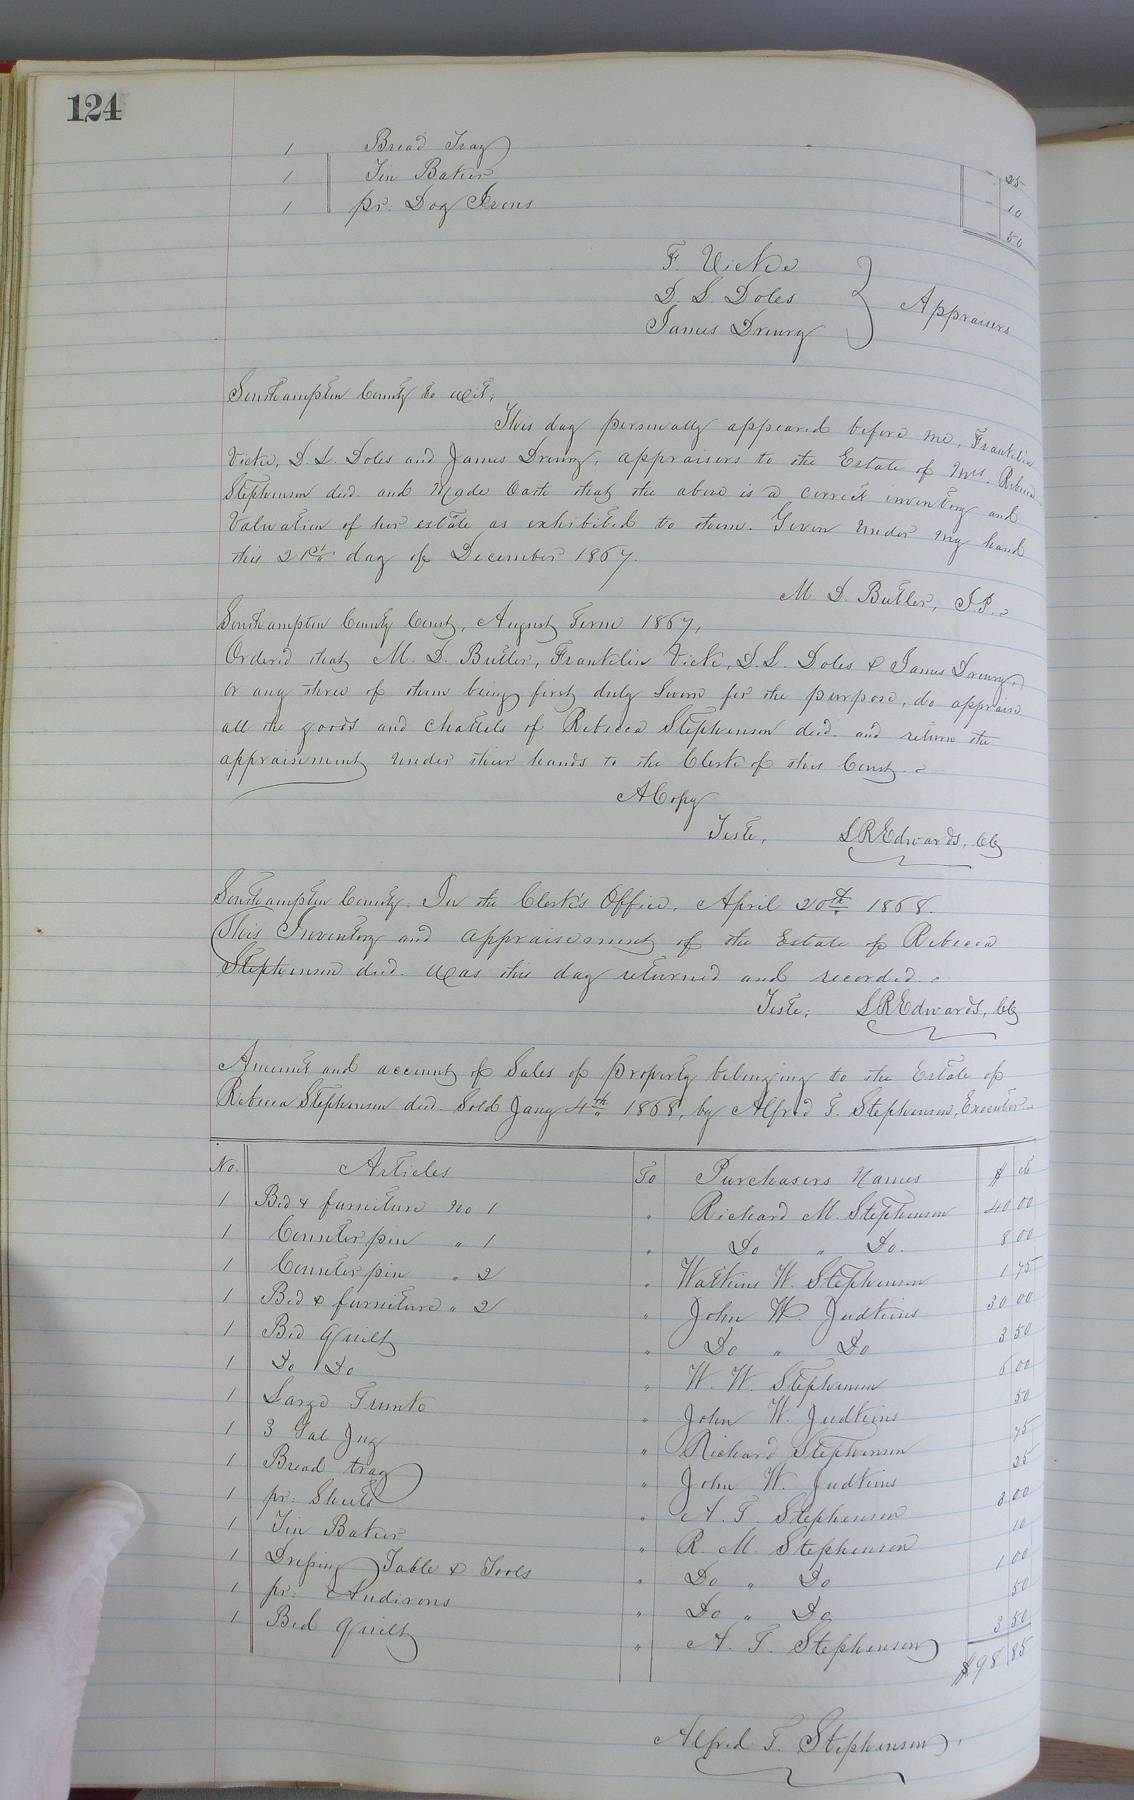 124
1 Bread Tray 25
1 Tin Baker 10
1 pr. Dog Irons 50
F. Vick
D. L. Doles
James Drewry
Appraisers
Southampton County to wit,
This day personally appeared before me, Franklin
Vick, D. L. Doles and James Drewry, appraisers to the Estate of Mrs. Rebecca
Stephenson decd. and made oath that the above is a correct inventory and
Valuation of her estate as exhibited to them. Given under my hand
this 21st day of December 1867.
M. D. Butler, J.P.
Southampton County Court, August Term 1867,
Ordered that M. D. Butler, Franklin Vick, D. L. Doles & James Drewry,
or any three of them being first duly sworn for the purpose, do appraise
all the goods and chattels of Rebecca Stephenson decd. and return the
appraisement under their hands to the Clerk of this Court.
A Copy
Teste, L R Edwards, Clk
Southampton County. In the Clerk's Office, April 20th 1868.
This Inventory and appraisement of the Estate of Rebecca
Stephenson decd. was this day returned and recorded.
Teste, L R Edwards, Clk
Amount and account of Sales of property belonging to the Estate of
Rebecca Stephenson decd. Sold Jany 4th 1868, by Alfred T. Stephenson, Executor.
No. Articles To Purchasers Names $ cts
1 Bed & furniture No 1 " Richard M. Stephenson 40 00
1 Counterpin " 1 " Do " Do. 8 00
1 Counterpin " 2 " Watkins W. Stephenson 1 75
1 Bed & furniture " 2 " John W. Judkins 30 00
1 Bed quilt " Do " Do 3 50
1 Do Do " W. W. Stephenson 6 00
1 Large Trunk " John W. Judkins 50
1 3 Gal Jug " Richard Stephenson 75
1 Bread tray " John W. Judkins 25
1 pr. Sheets " A. T. Stephenson 3 00
1 Tin Baker " R. M. Stephenson 10
1 Dressing Table & Tools " Do " Do 1 00
1 pr. Andirons " Do " Do 50
1 Bed quilt " A. T. Stephenson 3 50
$98 85
Alfred T. Stephenson.